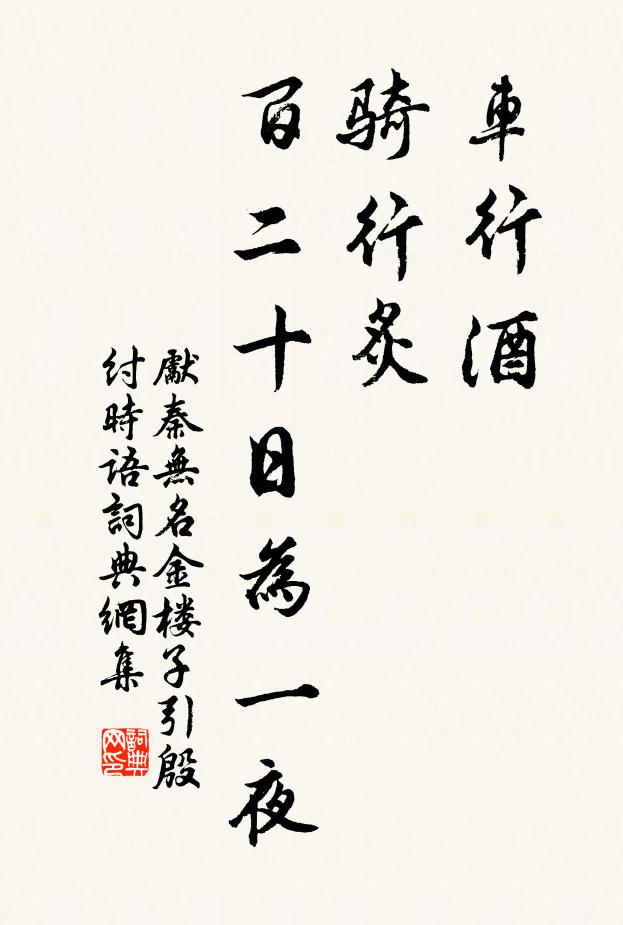 車行酒
騎行炙
百二十日為一夜
獻秦無名金楼子引殷
紂時语詞典網集
詞典网印